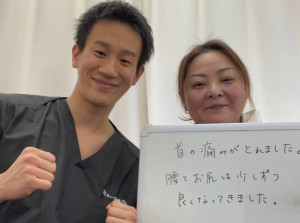 首の痛みがとれました。
腰とお尻は少しずつ
良くなってきました。